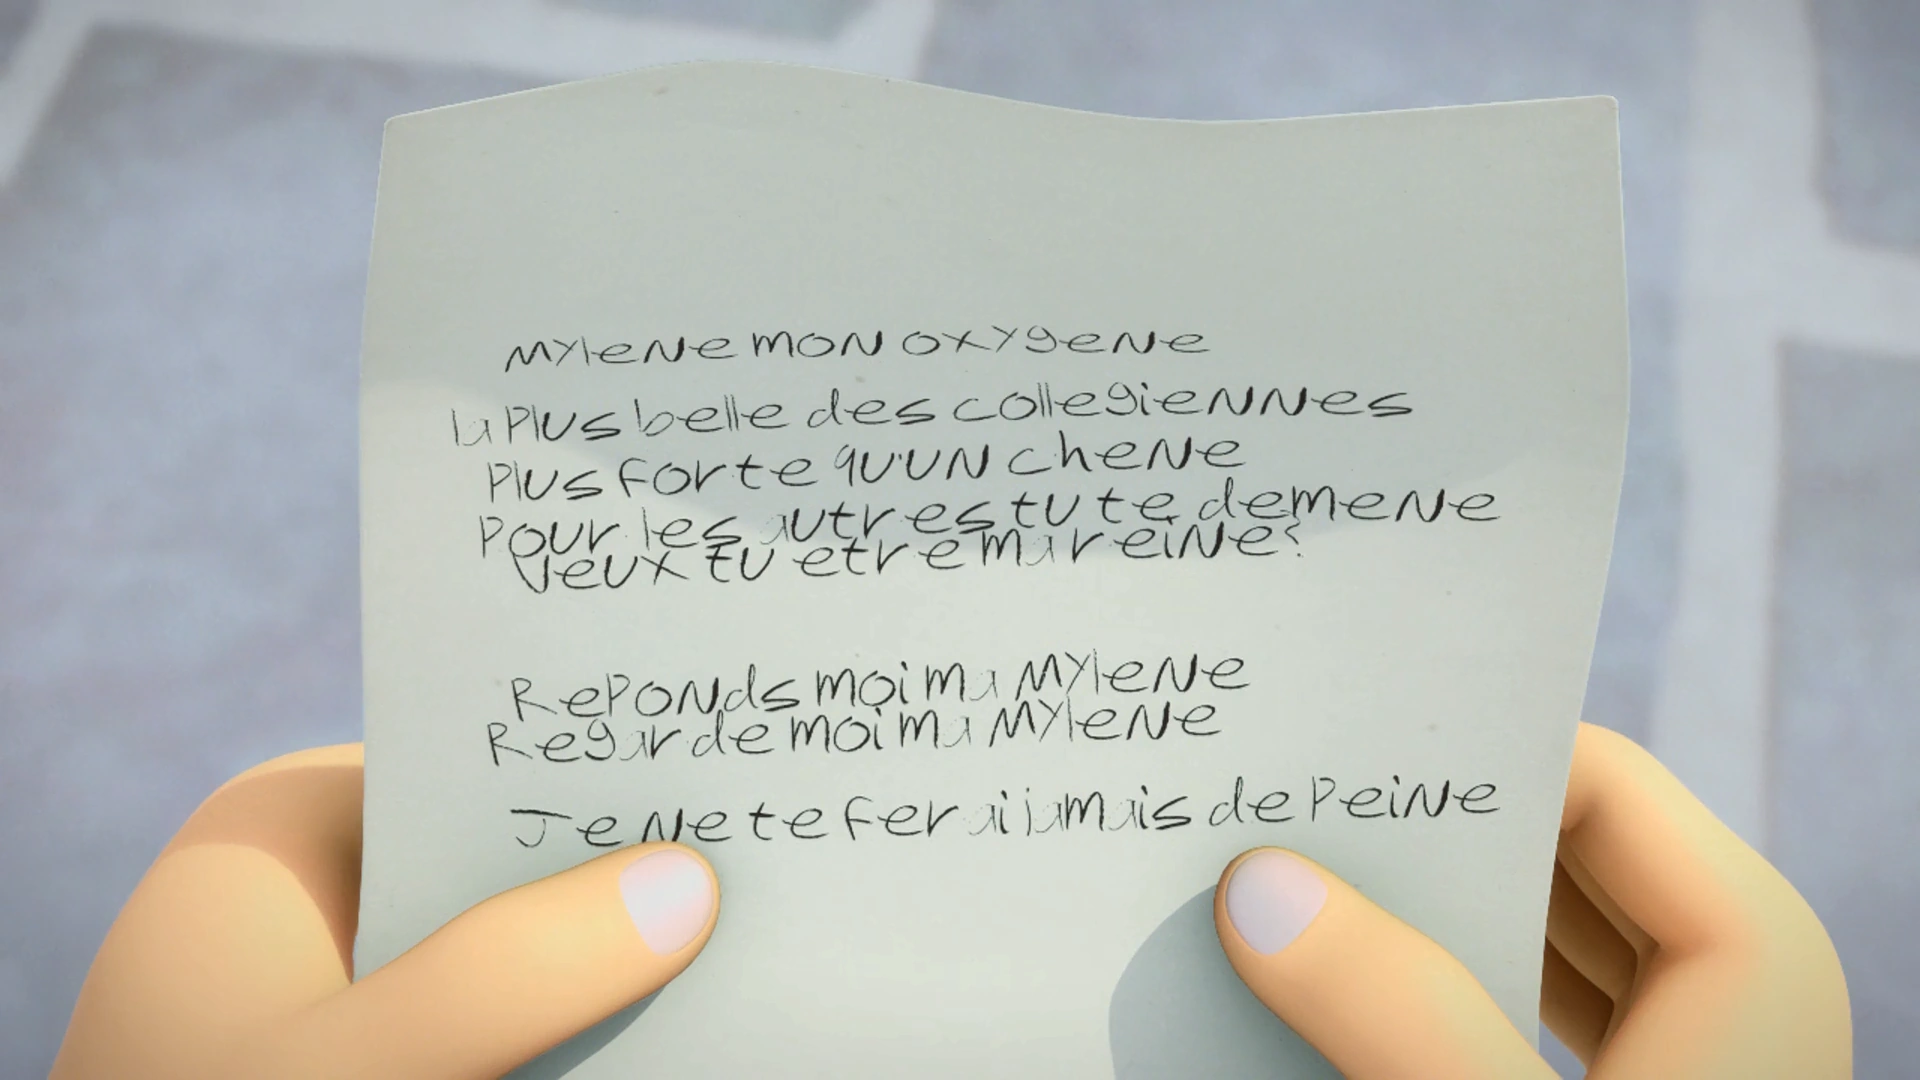 Mylene mon oxygene
la Plus belle des collegiennes
Plus forte qu'un chene
Pour les autres tu te demene
Veux tu etre ma reine?
Reponds moi ma Mylene
Regarde moi ma Mylene
Je ne te ferai jamais de Peine